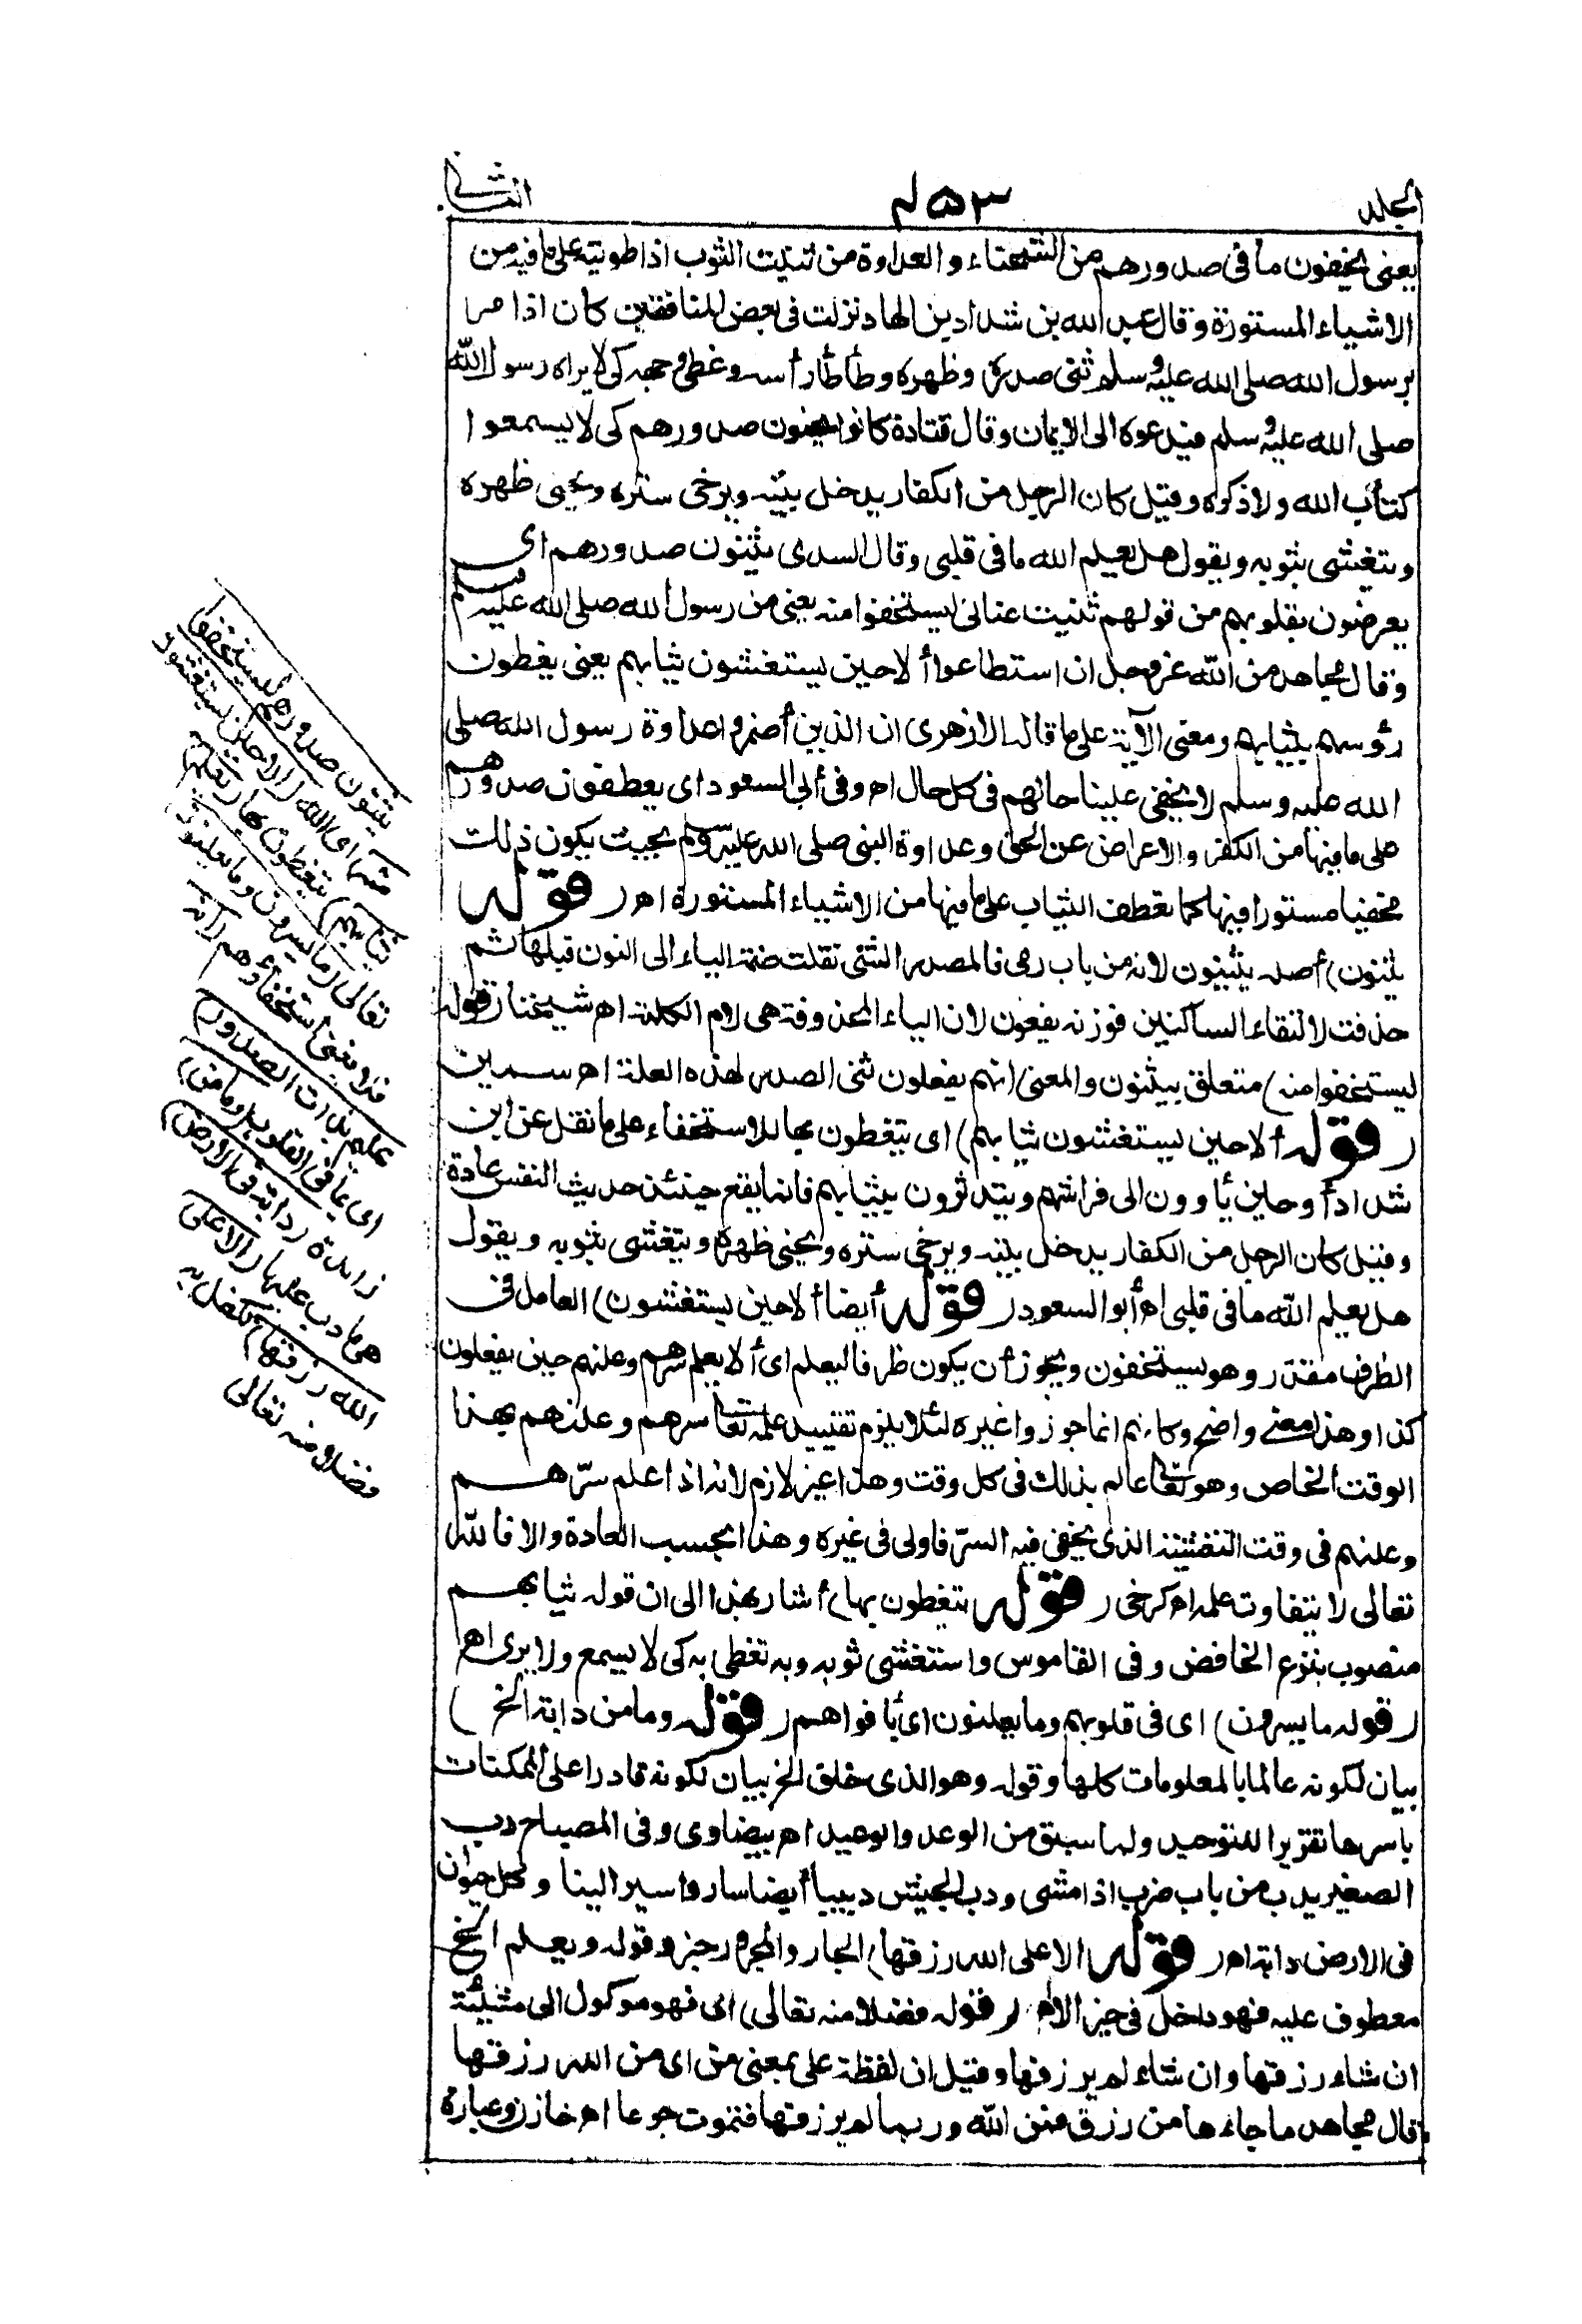 المجلد
٤٥٣
الثاني
يعنى يخفون ما فى صدورهم من الشحناء والعداوة من ثنيت الثوب اذا طويته على ما فيه من
الاشياء المستورة وقال عبد الله بن شداد بن الهاد نزلت فى بعض المنافقين كان اذا مر
برسول الله صلى الله عليه وسلم ثنى صدره وظهره وطأطأ رأسه وغطى وجهه كى لا يراه رسول الله
صلى الله عليه وسلم فيدعوه الى الايمان وقال قتادة كانوا يحنون صدورهم كى لا يسمعوا
كتاب الله ولا ذكره وقيل كان الرجل من الكفار يدخل بيته ويرخى ستره ويحنى ظهره
ويتغشى بثوبه ويقول هل يعلم الله ما فى قلبى وقال السدى يثنون صدورهم اى
يعرضون بقلوبهم من قولهم ثنيت عنانى ليستخفوا منه يعنى من رسول الله صلى الله عليه وسلم
وقال مجاهد من الله عز وجل ان استطاعوا ألا حين يستغشون ثيابهم يعنى يغطون
رؤسهم بثيابهم ومعنى الآية على ما قاله الازهرى ان الذين أضمروا عداوة رسول الله صلى
الله عليه وسلم لا يخفى علينا حالهم فى كل حال اه وفى أبى السعود اى يعطفون صدورهم
على ما فيها من الكفر والاعراض عن الحق وعداوة النبى صلى الله عليه وسلم بحيث يكون ذلك
مخفيا مستورا فيها كما تعطف الثياب على ما فيها من الاشياء المستورة اه (قوله
يثنون) أصله يثنيون لانه من باب رمى فالمصدر الثنى نقلت ضمة الياء الى النون قبلها ثم
حذفت لالتقاء الساكنين فوزنه يفعون لان الياء المحذوفة هى لام الكلمة اه شيخنا (قوله
ليستخفوا منه) متعلق بيثنون والمعنى انهم يفعلون ثنى الصدر لهذه العلة اه سمين
(قوله ألا حين يستغشون ثيابهم) اى يتغطون بها للاستخفاء على ما نقل عن ابن
شداد أو حين يأوون الى فراشهم ويتدثرون بثيابهم فانه يقع حينئذ حديث النفس عادة
وقيل كان الرجل من الكفار يدخل بيته ويرخى ستره ويحنى ظهره ويتغشى بثوبه ويقول
هل يعلم الله ما فى قلبى اه أبو السعود (قوله أيضا ألا حين يستغشون) العامل فى
الظرف مقدر وهو يستخفون ويجوز أن يكون ظرفا ليعلم اى ألا يعلم سرهم وعلنهم حين يفعلون
كذا وهذا معنى واضح وكانهم انما جوزوا غيره لئلا يلزم تقييد علمه تعالى سرهم وعلنهم بهذا
الوقت الخاص وهو تعالى عالم بذلك فى كل وقت وهذا غير لازم لانه اذا علم سرّهم
وعلنهم فى وقت التغشية الذى يخفى فيه السرّ فاولى فى غيره وهذا بحسب العادة والا فالله
تعالى لا يتفاوت علمه اه كرخى (قوله يتغطون بها) أشار بهذا الى ان قوله ثيابهم
منصوب بنزع الخافض وفى القاموس واستغشى ثوبه وبه تغطى به كى لا يسمع ولا يرى اه
(قوله ما يسرون) اى فى قلوبهم وما يعلنون اى بأفواههم (قوله وما من دابة الخ)
بيان لكونه عالما بالمعلومات كلها وقوله وهو الذى خلق الخ بيان لكونه قادرا على الممكنات
باسرها تقريرا للتوحيد ولما سبق من الوعد والوعيد اه بيضاوى وفى المصباح دب
الصغير يدب من باب ضرب اذا مشى ودب الجيش دبيبا أيضا ساروا سيرا لينا وكل حيوان
فى الارض دابة اه (قوله الا على الله رزقها) الجار والمجرور خبر وقوله ويعلم الخ
معطوف عليه فهو داخل فى حيز الا اه (قوله فضلا منه تعالى) اى فهو موكول الى مشيئته
ان شاء رزقها وان شاء لم يرزقها وقيل ان لفظة على بمعنى من اى من الله رزقها
قال مجاهد ما جاءها من رزق فمن الله وربما لم يرزقها فتموت جوعا اه خازن وعبارة
يثنون صدورهم ليستخفوا
منه) اى الله (ألا حين يستغشون
ثيابهم) يتغطون بها (يعلم)
تعالى (ما يسرون وما يعلنون)
فلا يغنى استخفاؤهم (انه
عليم بذات الصدور)
اى بما فى القلوب (وما من)
زائدة (دابة فى الارض)
هى ما دب عليها (الا على
الله رزقها) تكفل به
فضلا منه تعالى